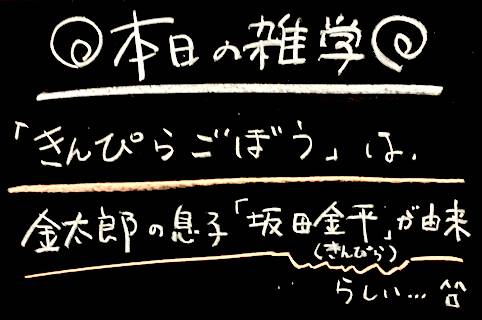 本日の雑学
「きんぴらごぼう」は、
金太郎の息子「坂田金平」が由来
(きんぴら)
らしい…